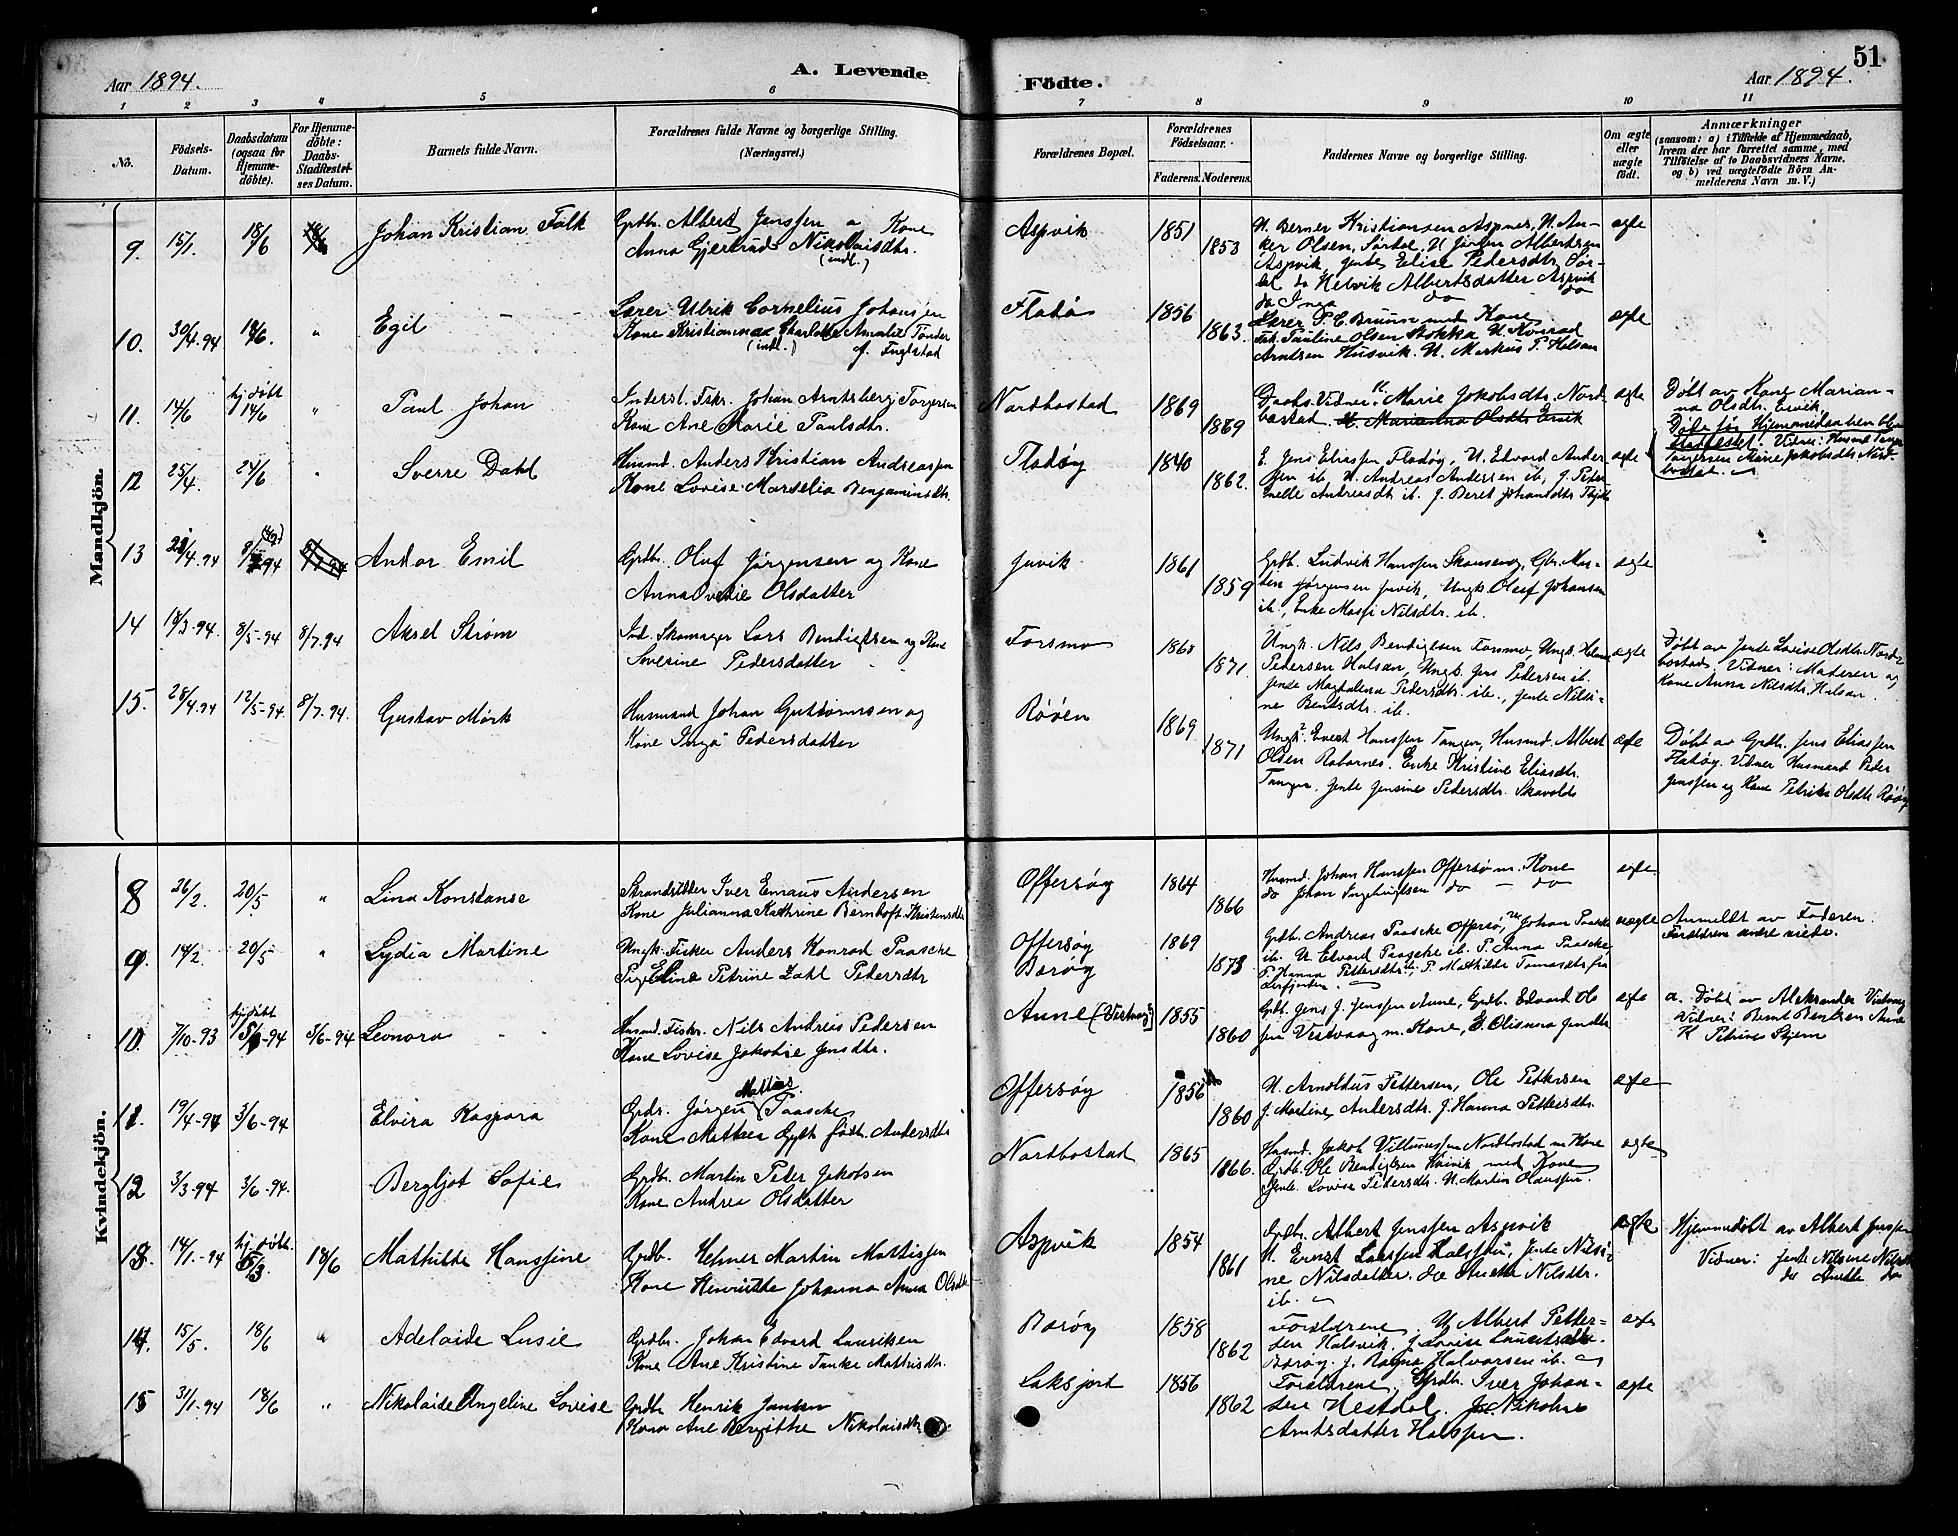 51
Aar 1894.
A. Levende
Födte.
Aar 1894.
1 2 3 4 5 6 7 8 9 10 11
No.
Födsels-Datum.
Daabsdatum (ogsaa for Hjemme-döbte).
For Hjemme-döbte: Daabs-Stadfæstelses Datum.
Barnets fulde Navn.
Forældrenes fulde Navne og borgerlige Stilling. (Næringsvei.)
Forældrenes Bopæl.
Forældrenes Födselsaar.
Faderens. Moderens.
Faddernes Navne og borgerlige Stilling.
Om ægte eller uægte födt.
Anmærkninger
(saasom: a) i Tilfælde af Hjemmedaab, hvem der har forrettet samme, med Tilföielse af to Daabsvidners Navne, og b) ved uægtefödte Börn Anmelderens Navn m. V.)
Mandkjön.
9. 15/1. 18/6 Johan Kristian Falk
Grdb. Albert Jenssen o Kone
Anna Gjertrud Nikolaisdtr.
(indl.)
Aspvik 1851 1853
U. Berner Kristiansen Aspnes, U. An-
ker Olsen, Sørdal, U Jørgen Albertsen
Aspvik, Jente Elise Pedersdtr. Sør-
dal do Helvik Albertsdatter Aspvik
do Inga do do
ægte
10. 30/4.94 18/6. " Egil
Lærer Ulrik Cornelius Johansen
Kone Kristianna Charlotte Amalie Tønder
(indl.)
Fladø 1856 1863.
Lærer P. C. Bruun med Kone
Frk. Pauline Olsen Stokka U. Konrad
Arntsen Husvik. U. Markus P. Halsan
ægte
11. 14/6 hj.døbt 14/6 " Paul Johan
Inderst. Fskr. Johan Arntsberg Torgersen
Kone Ane Marie Paulsdtr.
Nordbostad 1869 1869
Daabs-Vidner: Marie Jakobsdtr. Nord-
bostad. U. Marianna Olsdtr Ervik
ægte
Døbt av Kone Marian-
na Olsdtr. Ervik
12 25/4. 24/6 " Sverre Dahl
Husmd. Anders Kristian Andreassen
Kone Lovise Marselia Benjaminsdtr.
Fladøy 1840 1862.
E. Jens Eliassen Fladøy, U. Edvard Ander-
sen ib, U. Andreas Andersen ib, J. Peter-
nelle Andreasdtr ib. J. Beret Johansdtr
ægte
13 8/7 94 Andor Emil
Grdb. Oluf Jørgensen og Kone
Anna Ovidie Olsdatter
Juvik 1861 1859
Grdb. Ludvik Hanssen Skonseng, Gbr. Mar-
tin Jørgensen Juvik, Ungk Oluf Johansen
ib., Enke Massi Nilsdtr. ib.
ægte
14 18/3.94. 8/5-94 8/7.94 Aksel Strøm
Ind. Skomager Lars Bendigtsen og Kone
Severine Pedersdatter
Forsmo 1868 1871.
Ungk. Nils Bendigtsen Forsmo, Ungk.
Pedersen Halsan, Ungk. Jens Pedersen ib.
Jente Magdalena Pedersdtr. ib., Jente Nilsi-
ne Bentsdtr. ib.
ægte
Døbt av Jente Lovise Olsdtr. Nord-
bostad. Vidner: Moderen og
Kone Anna Nilsdtr. Halsan.
15. 28/4.94 12/5-94. 8/7-94. Gustav Mørk
Husmand Johan Guttormsen og
Kone Inga Pedersdatter
Røøen 1869 1871
Ungk. Evert Hanssen Tangen, Husmd. Albert
Olsen Rabarnes. Enke Kristine Eliasdtr.
Tangen, Jente Jensine Pedersdtr. Skavold
ægte
Døbt av Grdb. Jens Eliassen
Fladøy. Vidner Husmand Peder
Jenssen og Kone Petrikke Olsdtr Røøy
Kvindekjön.
8 26/2. 20/5 " Lina Konstanse
Strandsitter Iver Emaus Andersen
Kone Julianna Kathrine Bernhoft Kristensdtr
Offersøy 1864 1866
Husmd. Johan Hanssen Offersø m. Kone
do Johan Ingebrigtsen do - do
ægte
9. 14/2. 20/5 " Lydia Martine
Ungk. Fisker Anders Konrad Paasche
Pige Elina Petrine Zahl Pedersdtr
Offersøy
Barøy
1869 1873
Grdb. Andreas Paasche Offersø, U. Johan Paasche
ib. U Edvard Paasche ib. P. Anna Paasche
P. Hanna Pettersdtr. ib, P. Mathilde Tomasdtr fra
Leirfjorden.
uægte
Anmeldt av Faderen.
Forældrenes andre
10 7/10-93 hj.døbt 94 3/6-94 Leonora
Husmd. Fiskr. Nils Andreas Pedersen
Kone Lovise Jakobie Jensdtr.
Aune (Vistvaag) 1855 1860
Grdb. Jens J. Jenssen Aune, Grdb. Edvard Ols
sen Vistvaag m. Kone, E. Olianna Jensdtr
ægte
a. Døbt av Aleksander Vistvaag
Vidner: Bernt Bentsen Aune
K Petrine Stjern
11. 19/4-94 3/6-94 Elvira Kaspara
Grdr. Jørgen Mattias Paasche
Kone Mathea født Andersdtr
Offersøy 1856 1860
U. Arnoldus Pettersen, Ole Pettersen
J. Martine Andersdtr. J. Hanna Pettersdtr.
ægte
12 3/3-94 3/6-94. Bergljot Sofie
Grdb. Martin Peter Jakobsen
Kone Andrea Olsdatter
Nordbostad 1865 1866.
Husmd. Jakob Nordbostad m Kone
Grdb. Ole Bendigtsen med Kone
Jente Lovise Pedersdtr. U. Martin Olaussen.
ægte
13. 14/1.-94 hj.døbt. 18/6 Mathilde Hanssine
Grdb. Helmer Martin Mattissen
Kone Henrikke Johanna Anna Olsdtr
Aspvik 1854 1861
Grdb. Albert Jenssen Aspvik
U. Ernst Larssen, Jente Nilsi-
ne Nilsdatter. do Anette Nilsdtr.
ib.
ægte
Hjemmedøbt av Albert Jenssen
Vidner: Jente Nilsine Nilsdtr
do Anette do
14. 15/5. 18/6 " Adelaide Lusie
Grdb. Johan Edvard Lauriksen
Kone Ane Kristine Tanke Mattisdtr.
Barøy 1858 1862
Forældrene. U Albert Petter-
sen Halsvik. J. Lovise
Barøy. J. Ragna Halvorsen ib.
ægte
15 31/1.94 18/6 " Nikolaide Angeline Lovise
Grdb Henrik Jansen
Kone Ane Bergitte Nikolaisdtr
Laksjord 1856 1862
Forældrene, Grdb. Iver Johan-
sen Hestdal. Nikoline
Arntsdatter Halssen.
ægte